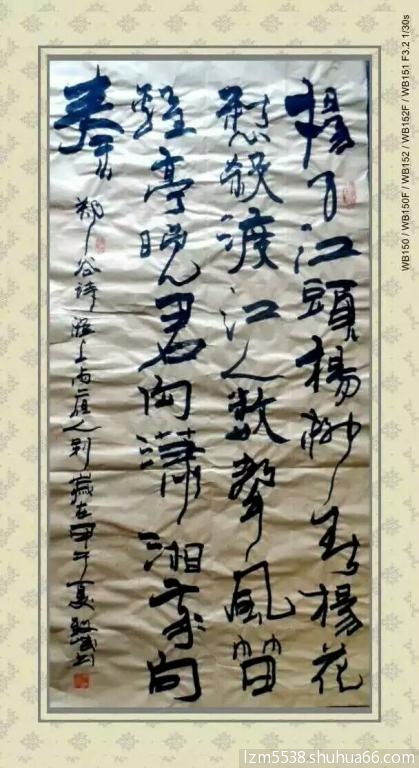 揚子江頭楊柳春楊花
愁殺渡江人數聲風笛
離亭晚君向瀟湘我向
秦
鄭谷詩淮上与友人别歲在甲午夏
WB150 / WB150F / WB152 / WB152F / WB151 F3.2 1/30s
lzm5538.shuhua66.com